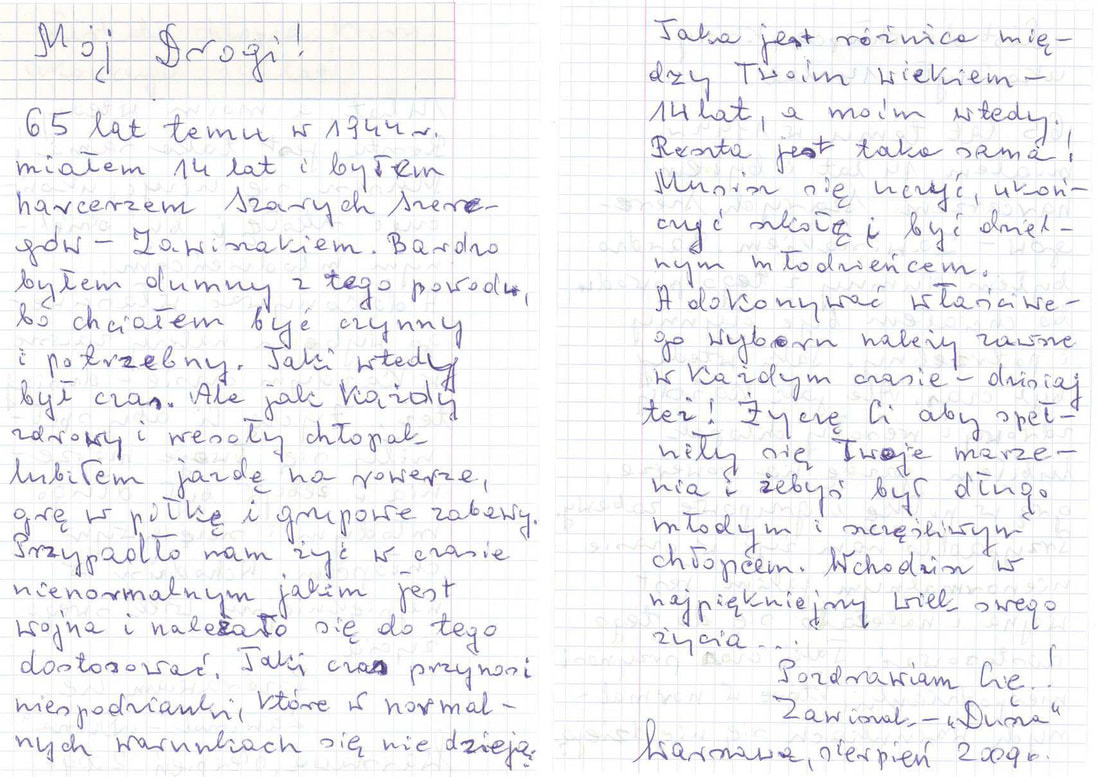 Mój Drogi!
65 lat temu w 1944 r.
miałem 14 lat i byłem
harcerzem Szarych Szere-
gów – Zawiszakiem. Bardzo
byłem dumny z tego powodu,
bo chciałem być czynny
i potrzebny. Taki wtedy
był czas. Ale jak każdy
zdrowy i wesoły chłopak
lubiłem jazdę na rowerze,
grę w piłkę i grupowe zabawy.
Przypadło nam żyć w czasie
nienormalnym jakim jest
wojna i należało się do tego
dostosować. Taki czas przynosi
niespodzianki, które w normal-
nych warunkach się nie dzieją.
Taka jest różnica mię-
dzy Twoim wiekiem –
14 lat, a moim wtedy.
Reszta jest taka sama!
Musisz się uczyć, ukoń-
czyć szkołę i być dziel-
nym młodzieńcem.
A dokonywać właściwe-
go wyboru należy zawsze
w każdym czasie – dzisiaj
też! Życzę Ci aby speł-
niły się Twoje marze-
nia i żebyś był długo
młodym i szczęśliwym
chłopcem. Wchodzisz w
najpiękniejszy wiek swego
życia...
Pozdrawiam Cię..!
Zawiszak – „Dusza"
Warszawa, sierpień 2009r.